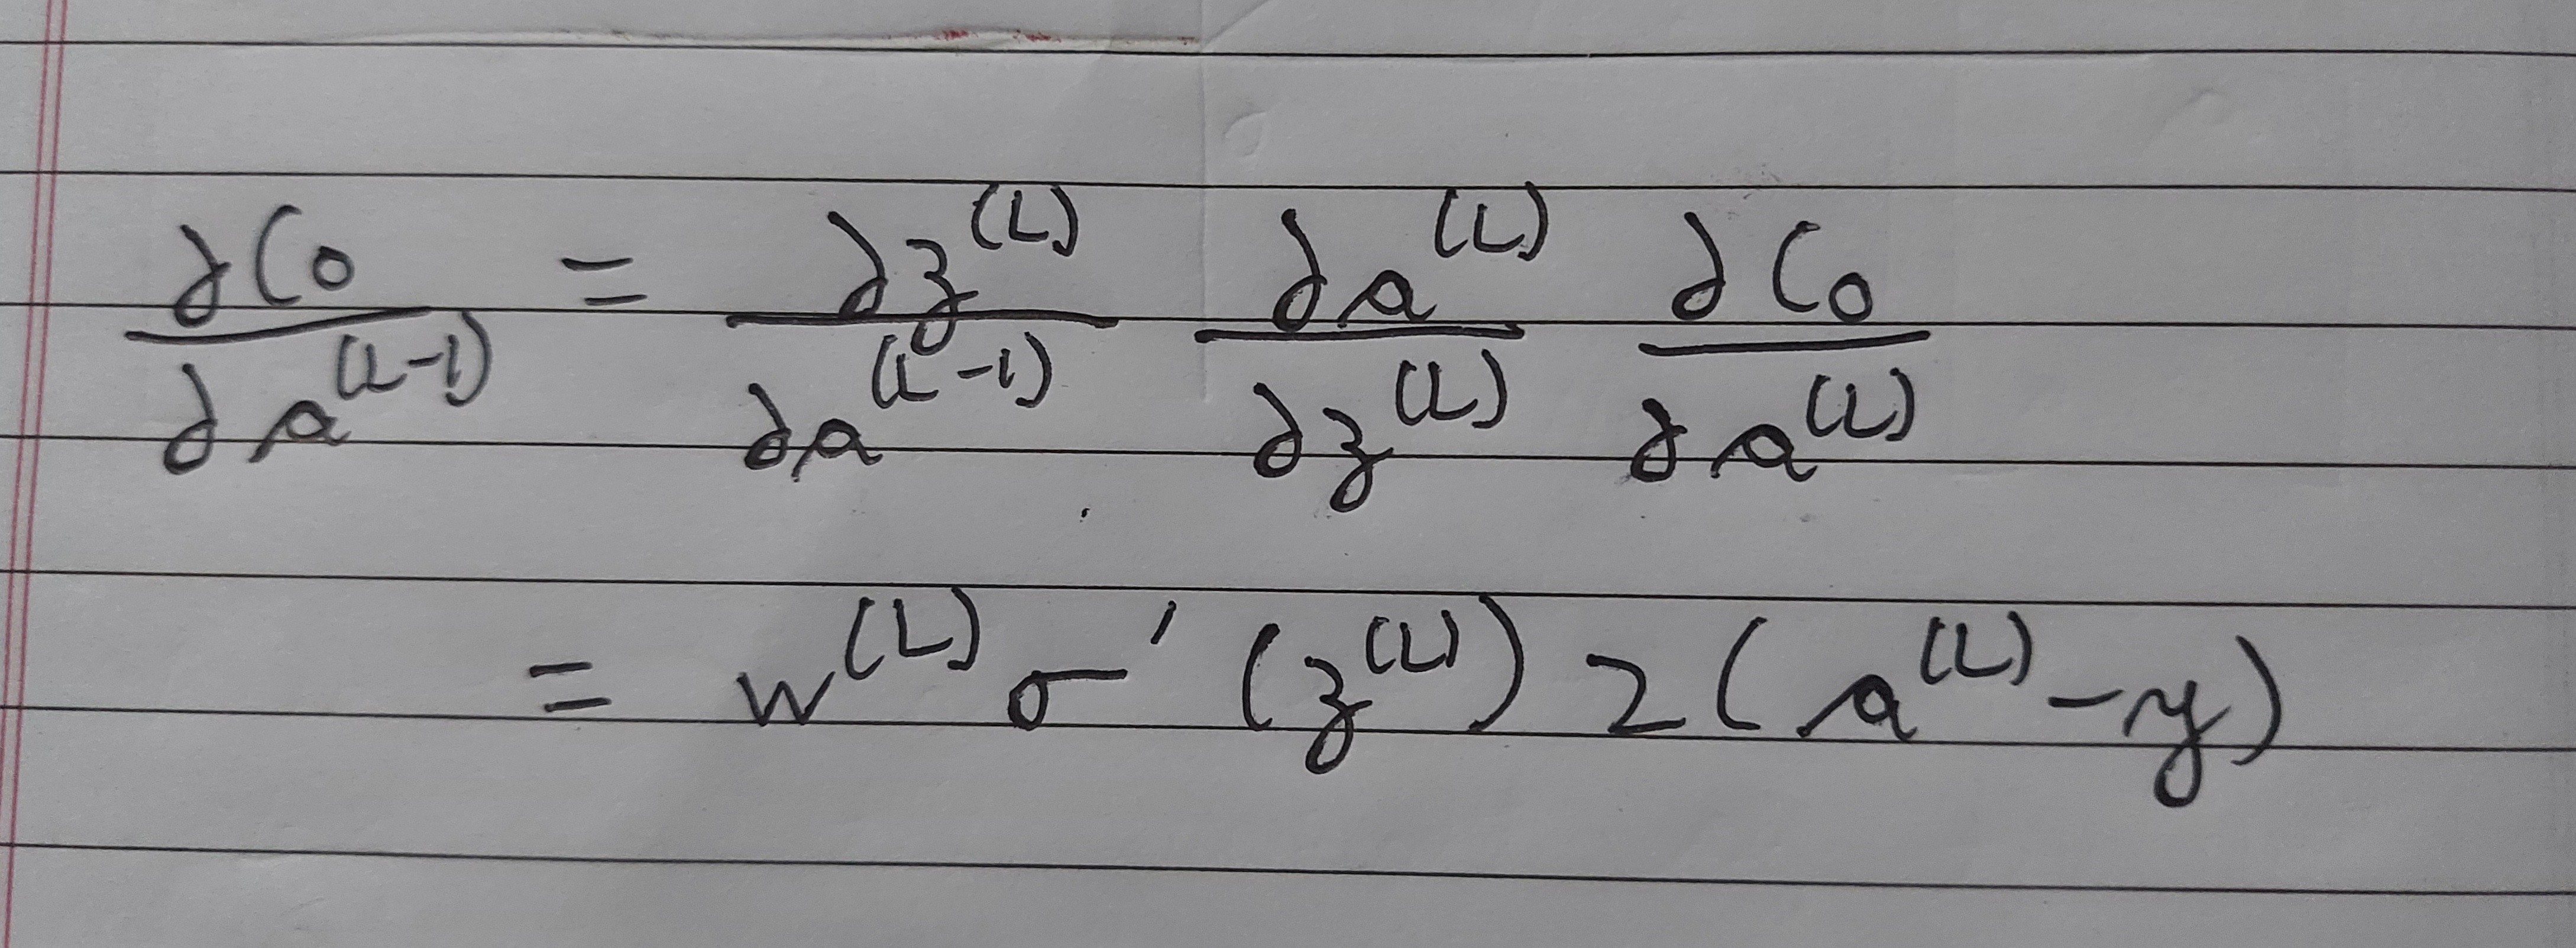 ∂C₀/∂a^(L-1) = ∂z^(L)/∂a^(L-1) ∂a^(L)/∂z^(L) ∂C₀/∂a^(L)
= w^(L) σ'(z^(L)) 2(a^(L) - y)